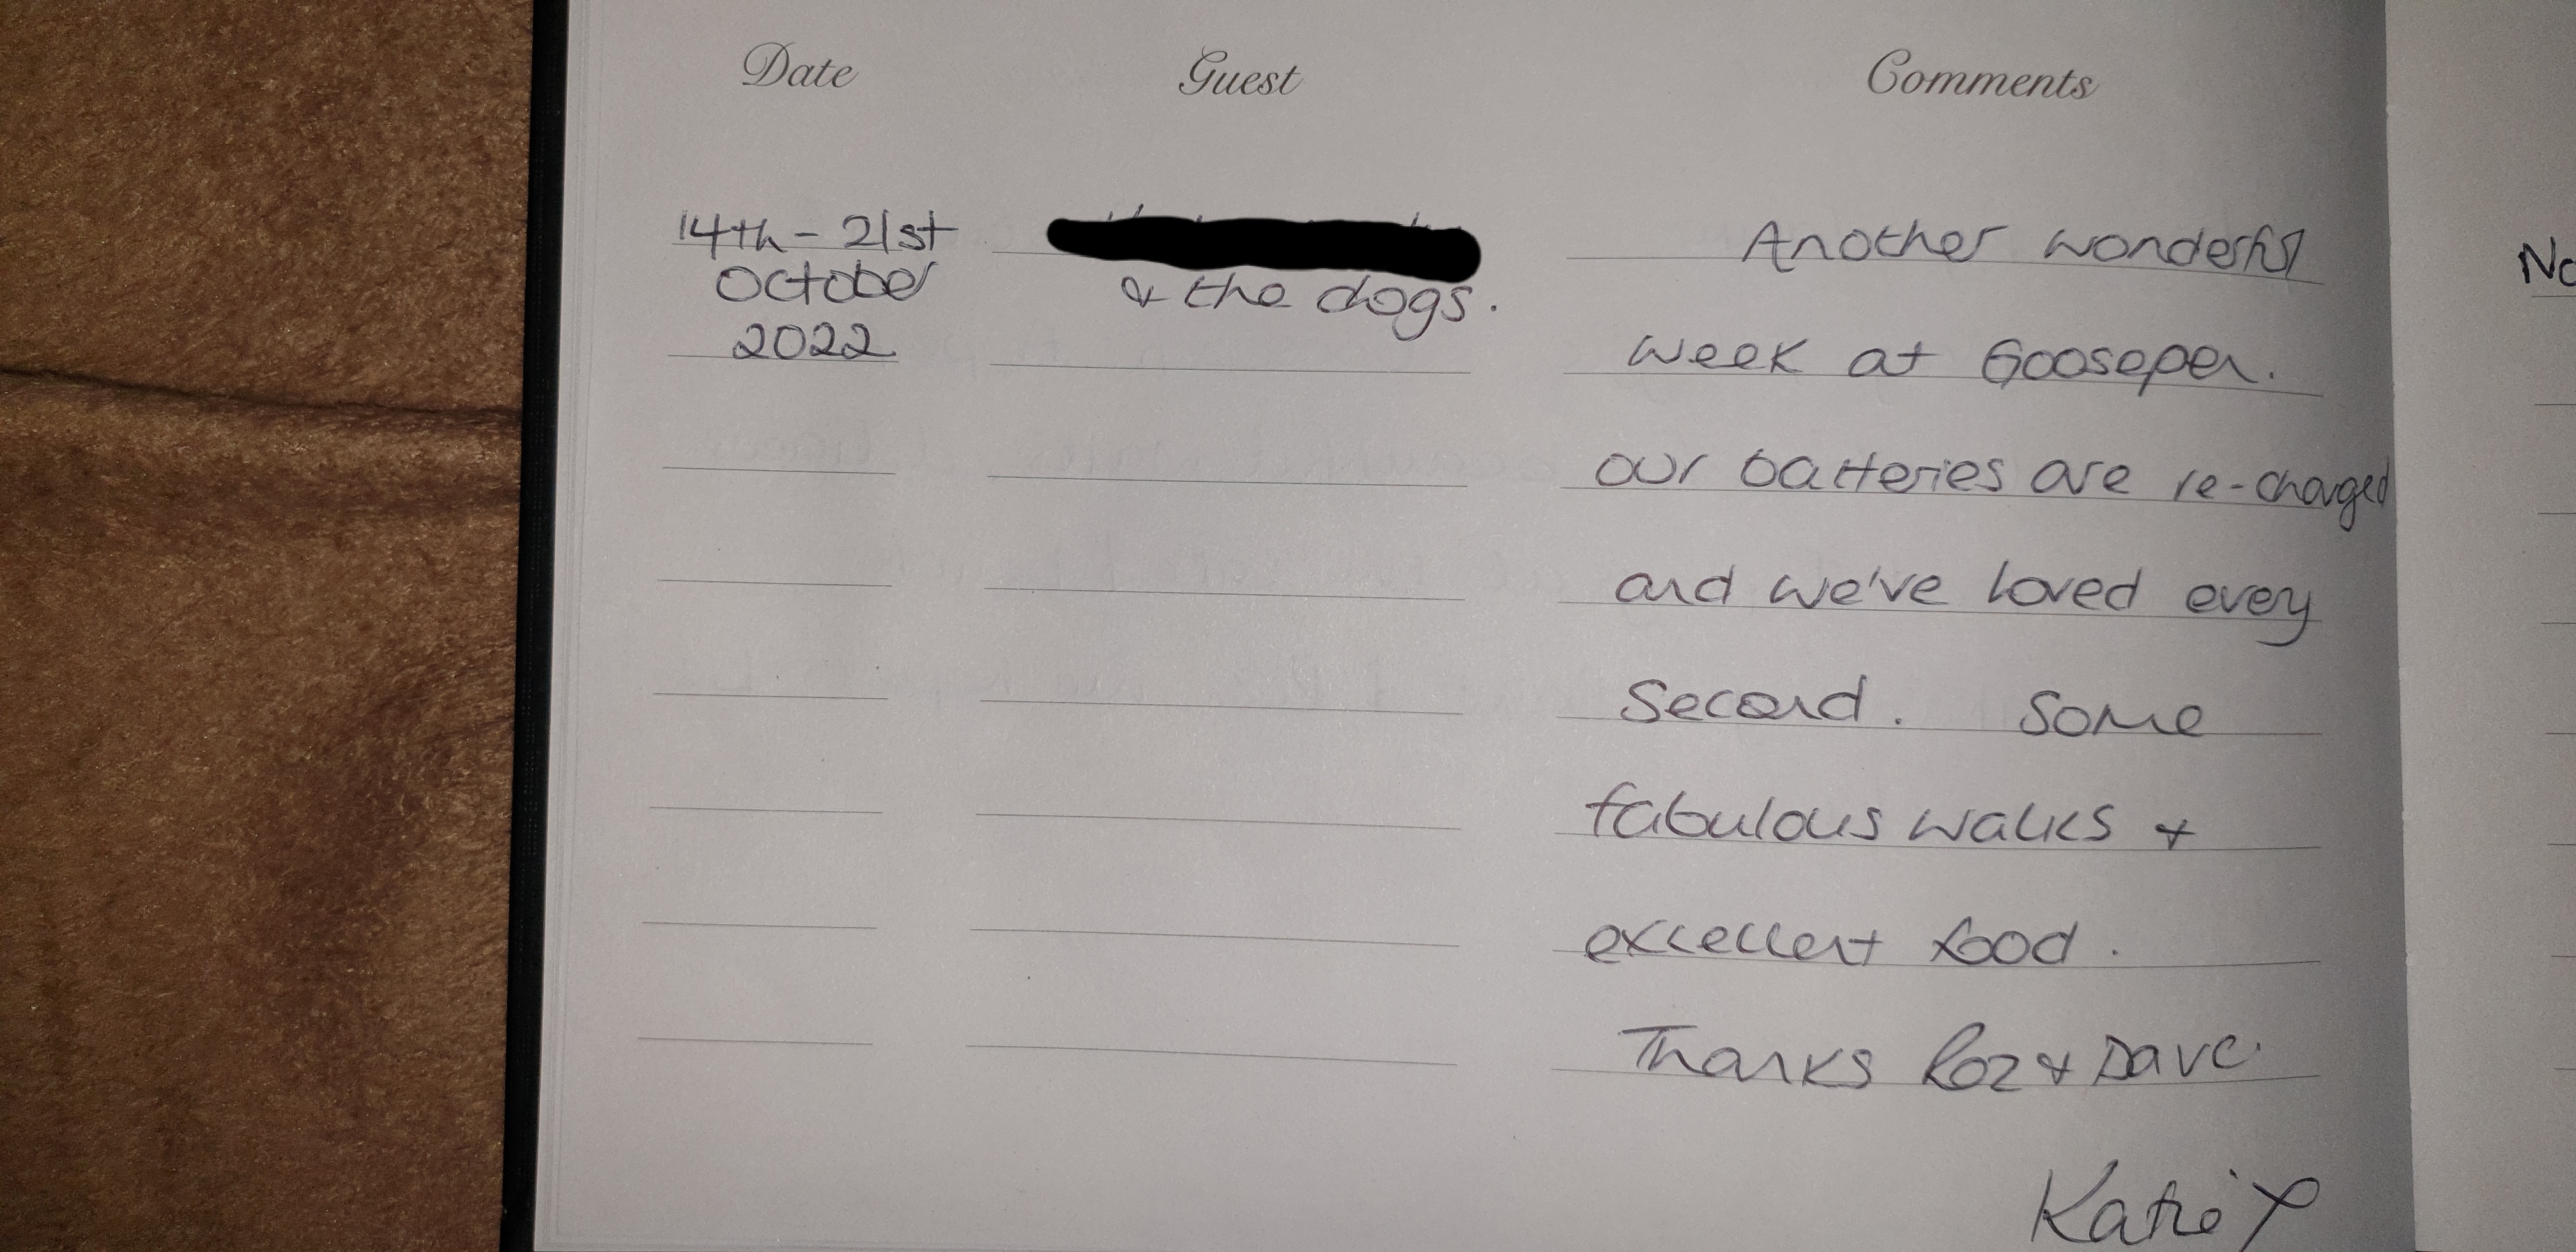 Date Guest Comments
14th - 21st
October
2022
& the dogs.
Another wonderful
week at Goosepen.
our batteries are re-charged
and we've loved every
second. Some
fabulous walks &
excellent food.
Thanks Roz & Dave.
Katie x